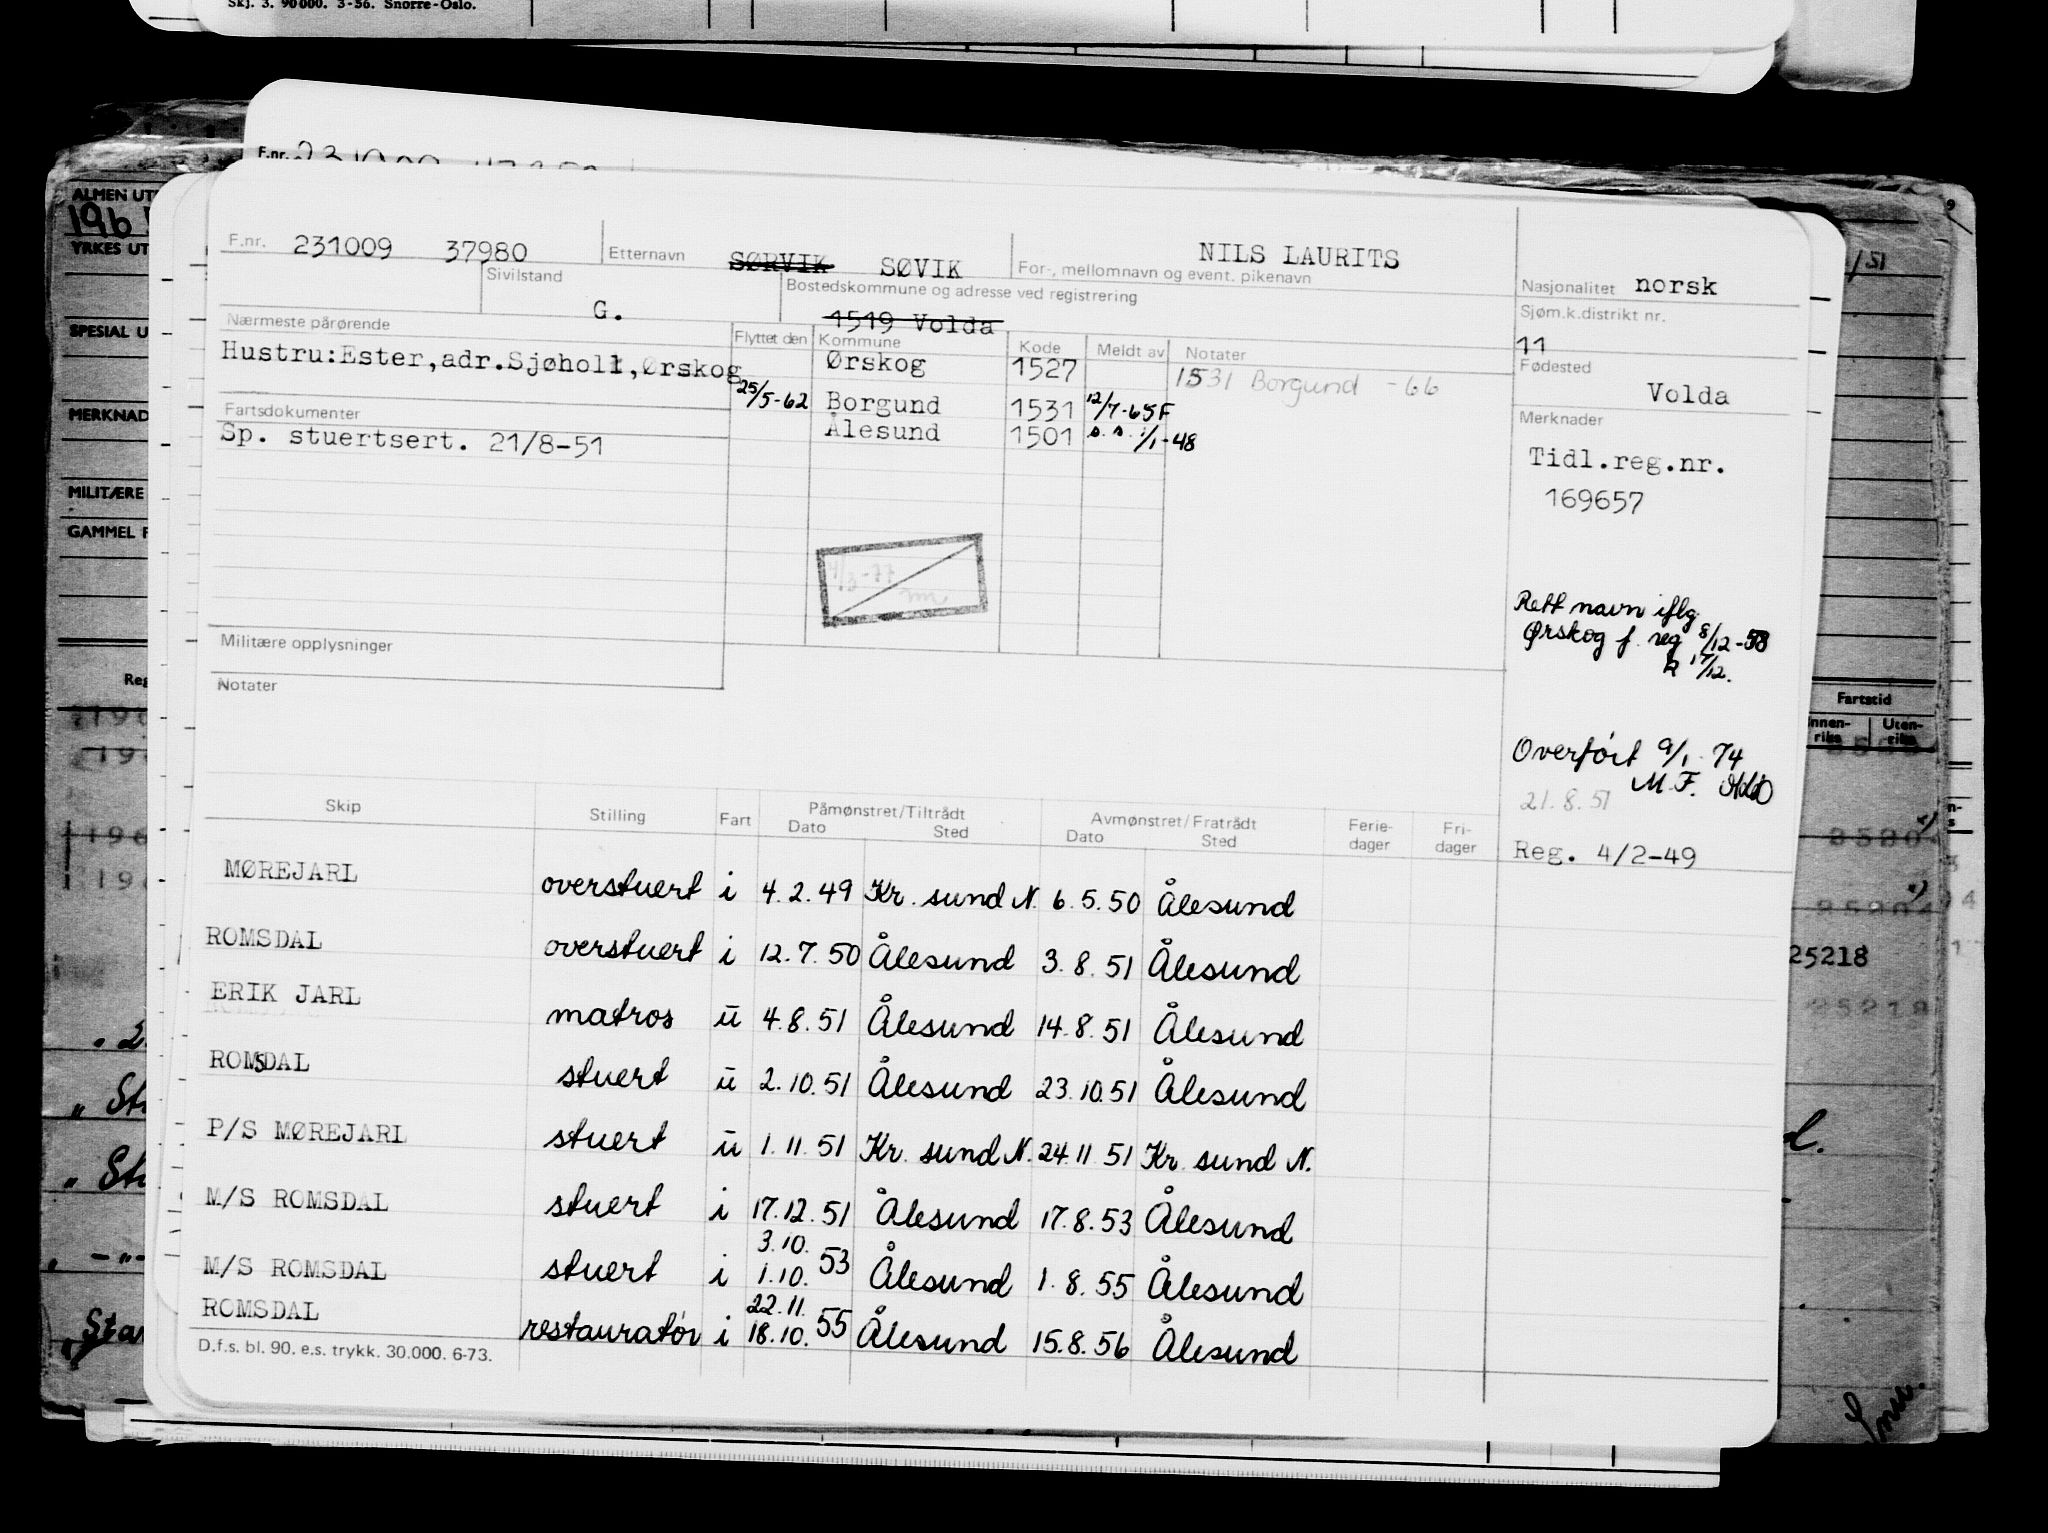 Skj. 3. 90000. 3-56. Snorre-Oslo.
F.nr. 231009
ALMEN UT
196
YRKES UT
SPESIAL U
MERKNAD
MILITÆRE
GAMMEL F
Reg
F.nr. 231009 37980 Etternavn SØRVIK SØVIK NILS LAURITS
For-, mellomnavn og event. pikenavn
Nasjonalitet norsk
Sivilstand G. Bostedskommune og adresse ved registrering
1519 Volda
Sjøm.k.distrikt nr.
11
Nærmeste pårørende Flyttet den Kommune Kode Meldt av Notater
Hustru:Ester,adr.Sjøholt,Ørskog Ørskog 1527 1531 Borgund -66
Fødested
Volda
25/5-62 Borgund 1531 12/7-65F
Fartsdokumenter
Sp. stuertsert. 21/8-51 Ålesund 1501 s. s. 1/1-48
Merknader
Tidl.reg.nr.
169657
4/3-77
Rett navn iflg
Ørskog f. reg 8/12-58
17/12.
Militære opplysninger
Notater
Overført 9/1-74
M.F.
21.8.51
Reg. 4/2-49
Skip Stilling Fart Påmønstret/Tiltrådt Avmønstret/Fratrådt Ferie- Fri-
Dato Sted Dato Sted dager dager
MØREJARL overstuert i 4.2.49 Kr. sund N. 6.5.50 Ålesund
ROMSDAL overstuert i 12.7.50 Ålesund 3.8.51 Ålesund
ERIK JARL matros u 4.8.51 Ålesund 14.8.51 Ålesund
ROMSDAL stuert u 2.10.51 Ålesund 23.10.51 Ålesund
P/S MØREJARL stuert u 1.11.51 Kr. sund N. 24.11.51 Kr. sund N.
M/S ROMSDAL stuert i 17.12.51 Ålesund 17.8.53 Ålesund
3.10.
M/S ROMSDAL stuert i 1.10.53 Ålesund 1.8.55 Ålesund
22.11.
ROMSDAL restauratør i 18.10.55 Ålesund 15.8.56 Ålesund
D.f.s. bl. 90. e.s. trykk. 30.000. 6-73.
/51
Fartstid
Innen- Uten-
riks riks
25218
25218